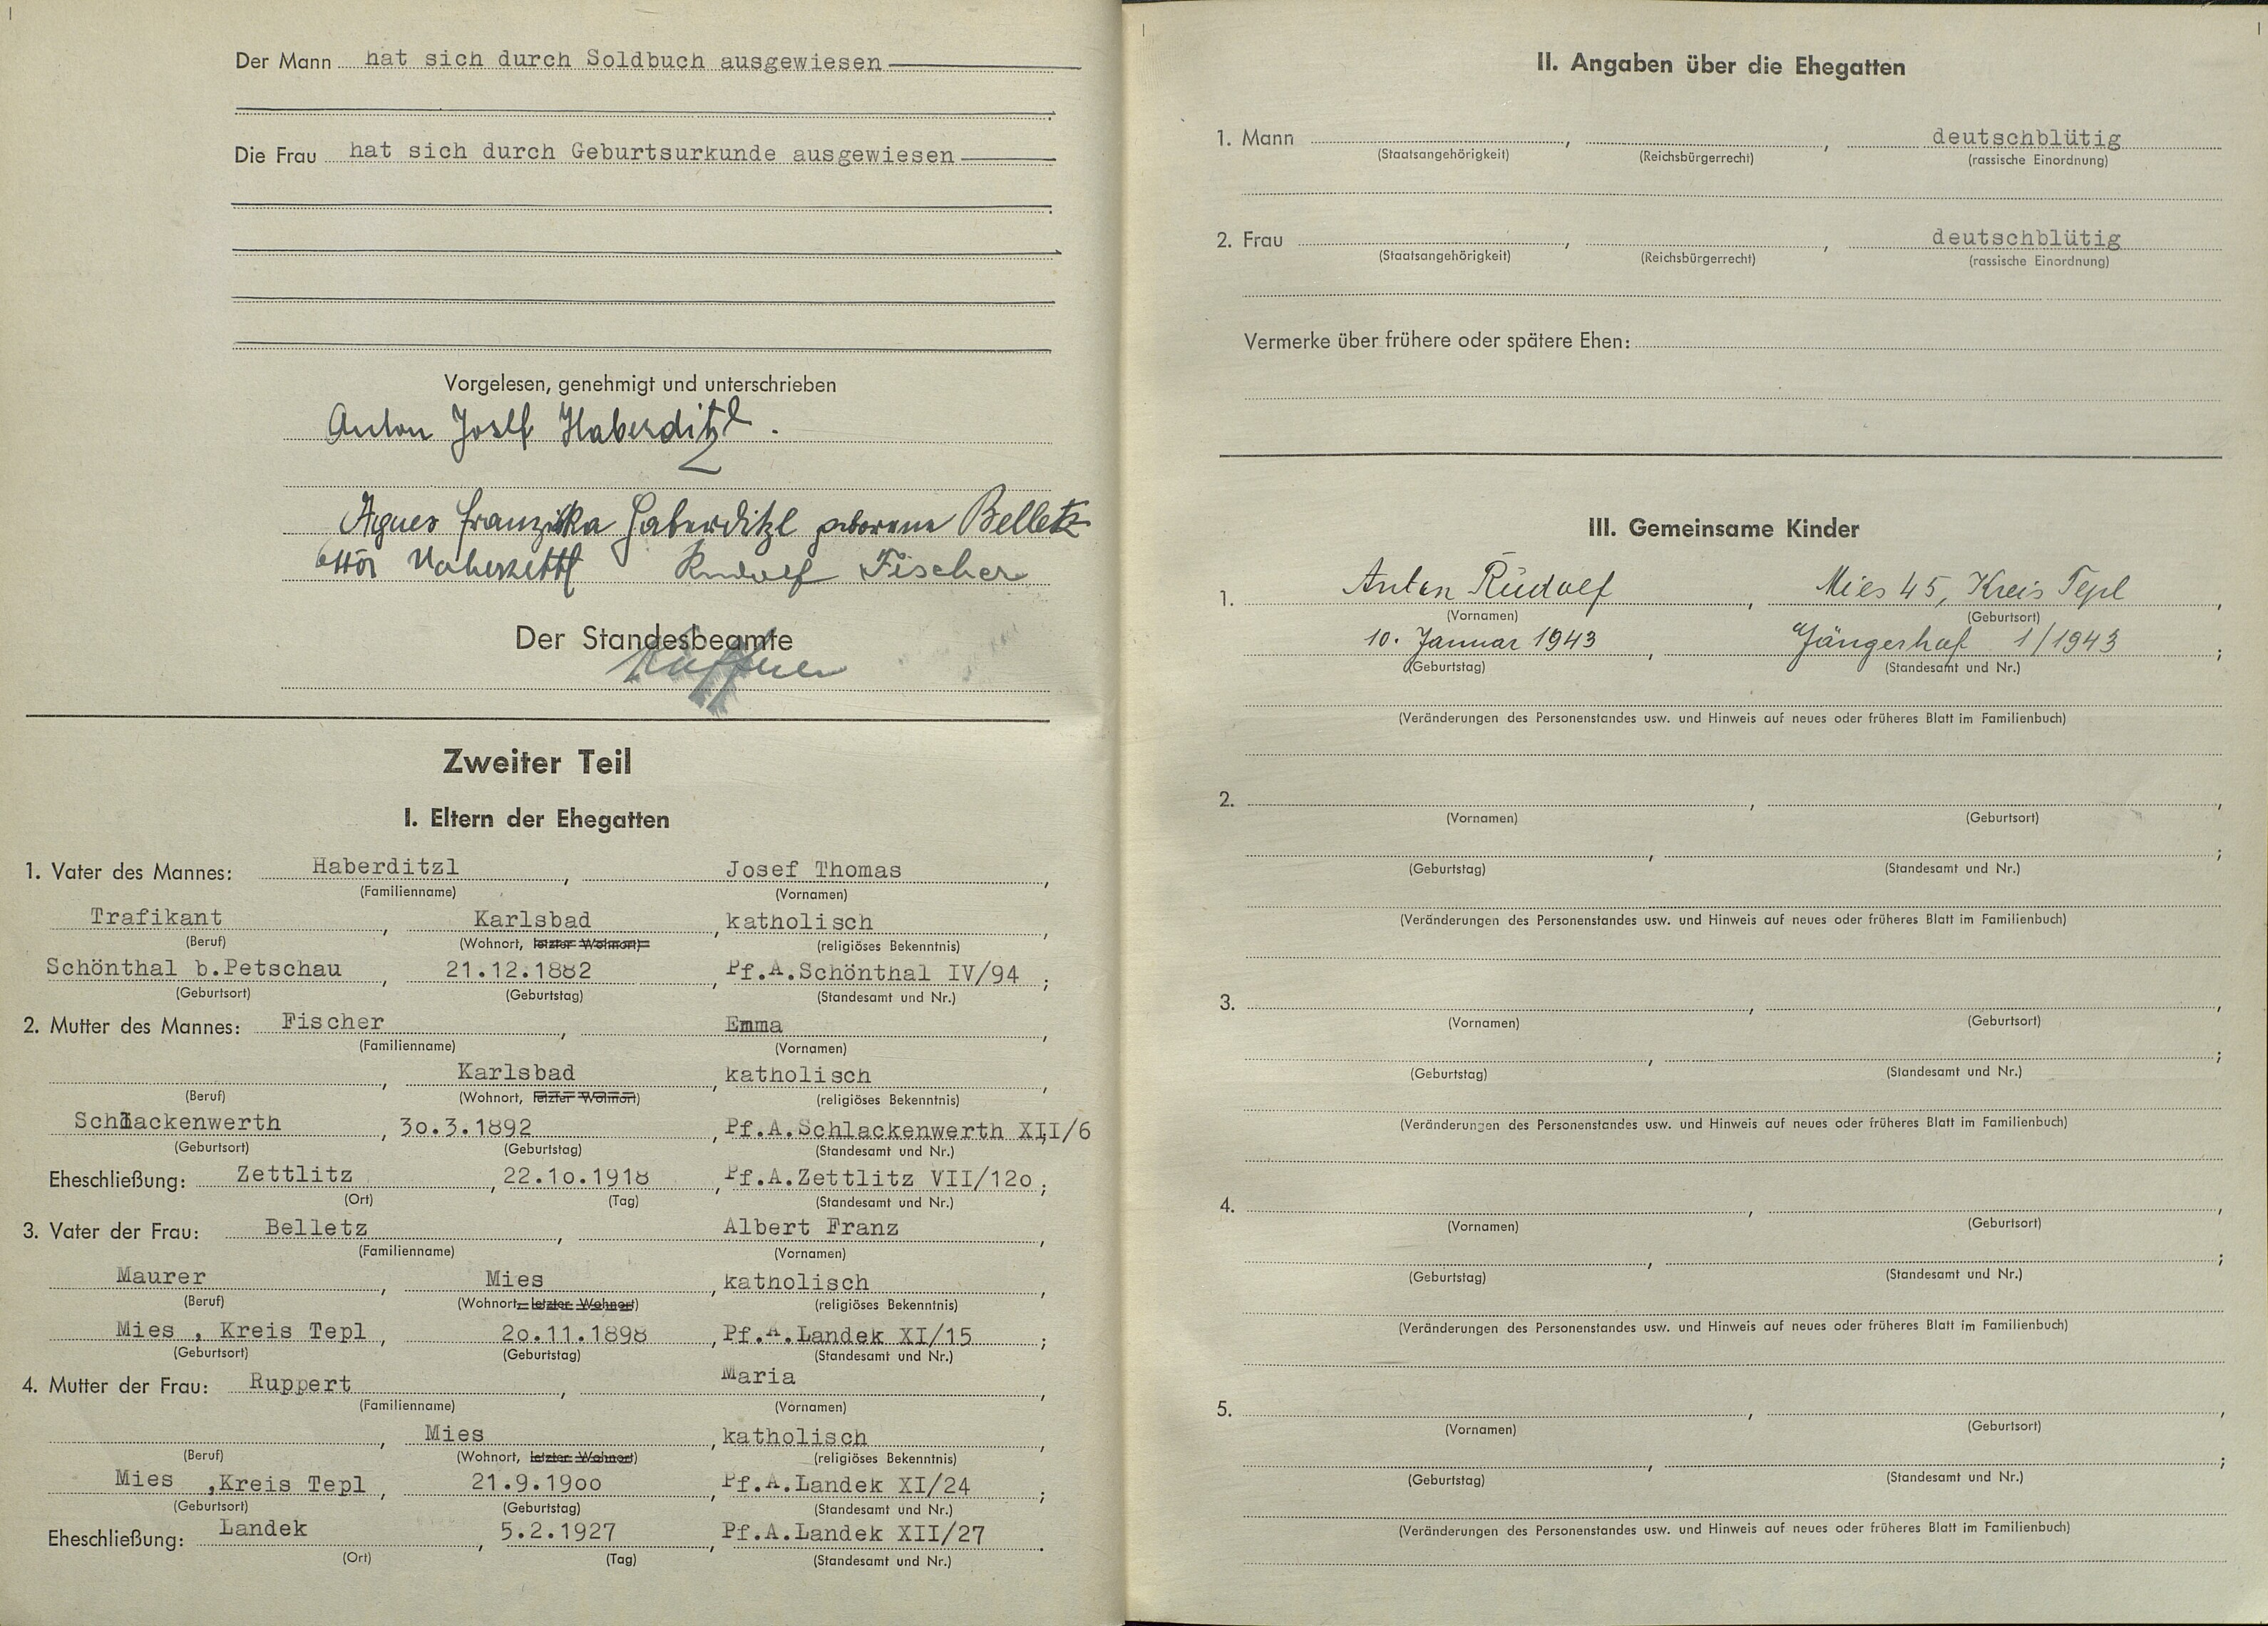 Der Mann hat sich durch Soldbuch ausgewiesen
Die Frau hat sich durch Geburtsurkunde ausgewiesen
Vorgelesen, genehmigt und unterschrieben
Anton Josef Haberditzl.
Agnes Franziska Haberditzl geborene Belletz
Rudolf Fischer
Der Standesbeamte
Zweiter Teil
I. Eltern der Ehegatten
1. Vater des Mannes: Haberditzl, Josef Thomas,
(Familienname) (Vornamen)
Trafikant, Karlsbad, katholisch,
(Beruf) (Wohnort, letzter Wohnort) (religiöses Bekenntnis)
Schönthal b.Petschau, 21.12.1882, Pf.A.Schönthal IV/94;
(Geburtsort) (Geburtstag) (Standesamt und Nr.)
2. Mutter des Mannes: Fischer, Emma,
(Familienname) (Vornamen)
, Karlsbad, katholisch,
(Beruf) (Wohnort, letzter Wohnort) (religiöses Bekenntnis)
Schlackenwerth, 3o.3.1892, Pf.A.Schlackenwerth XII/6;
(Geburtsort) (Geburtstag) (Standesamt und Nr.)
Eheschließung: Zettlitz, 22.1o.1918, Pf.A.Zettlitz VII/12o;
(Ort) (Tag) (Standesamt und Nr.)
3. Vater der Frau: Belletz, Albert Franz,
(Familienname) (Vornamen)
Maurer, Mies, katholisch,
(Beruf) (Wohnort, letzter Wohnort) (religiöses Bekenntnis)
Mies , Kreis Tepl, 2o.11.1898, Pf.A.Landek XI/15;
(Geburtsort) (Geburtstag) (Standesamt und Nr.)
4. Mutter der Frau: Ruppert, Maria,
(Familienname) (Vornamen)
, Mies, katholisch,
(Beruf) (Wohnort, letzter Wohnort) (religiöses Bekenntnis)
Mies ,Kreis Tepl, 21.9.19oo, Pf.A.Landek XI/24;
(Geburtsort) (Geburtstag) (Standesamt und Nr.)
Eheschließung: Landek, 5.2.1927, Pf.A.Landek XII/27.
(Ort) (Tag) (Standesamt und Nr.)
II. Angaben über die Ehegatten
1. Mann , , deutschblütig
(Staatsangehörigkeit) (Reichsbürgerrecht) (rassische Einordnung)
2. Frau , , deutschblütig
(Staatsangehörigkeit) (Reichsbürgerrecht) (rassische Einordnung)
Vermerke über frühere oder spätere Ehen:
III. Gemeinsame Kinder
1. Anton Rudolf, Mies 45, Kreis Tepl,
(Vornamen) (Geburtsort)
10. Januar 1943, Jängerhof 1/1943;
(Geburtstag) (Standesamt und Nr.)
(Veränderungen des Personenstandes usw. und Hinweis auf neues oder früheres Blatt im Familienbuch)
2. , ,
(Vornamen) (Geburtsort)
, ;
(Geburtstag) (Standesamt und Nr.)
(Veränderungen des Personenstandes usw. und Hinweis auf neues oder früheres Blatt im Familienbuch)
3. , ,
(Vornamen) (Geburtsort)
, ;
(Geburtstag) (Standesamt und Nr.)
(Veränderungen des Personenstandes usw. und Hinweis auf neues oder früheres Blatt im Familienbuch)
4. , ,
(Vornamen) (Geburtsort)
, ;
(Geburtstag) (Standesamt und Nr.)
(Veränderungen des Personenstandes usw. und Hinweis auf neues oder früheres Blatt im Familienbuch)
5. , ,
(Vornamen) (Geburtsort)
, ;
(Geburtstag) (Standesamt und Nr.)
(Veränderungen des Personenstandes usw. und Hinweis auf neues oder früheres Blatt im Familienbuch)